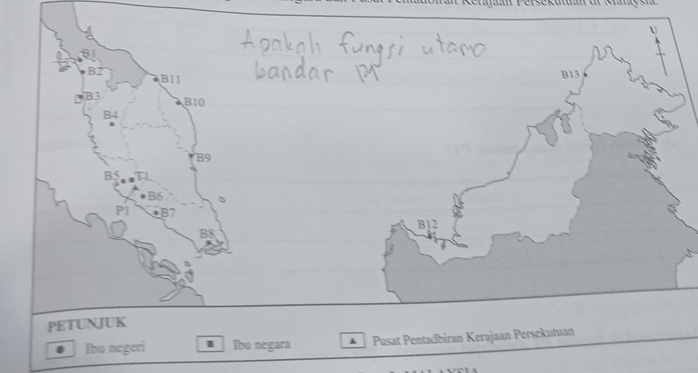 dan Pusat Pentadbiran Kerajaan Persekutuan di Malaysia.
Apakah fungsi utama
bandar P1
U
B1
B2
B3
B4
B11
B10
B9
B5
T1
B6
P1
B7
B8
B13
B12
PETUNJUK
Ibu negeri
Ibu negara
Pusat Pentadbiran Kerajaan Persekutuan